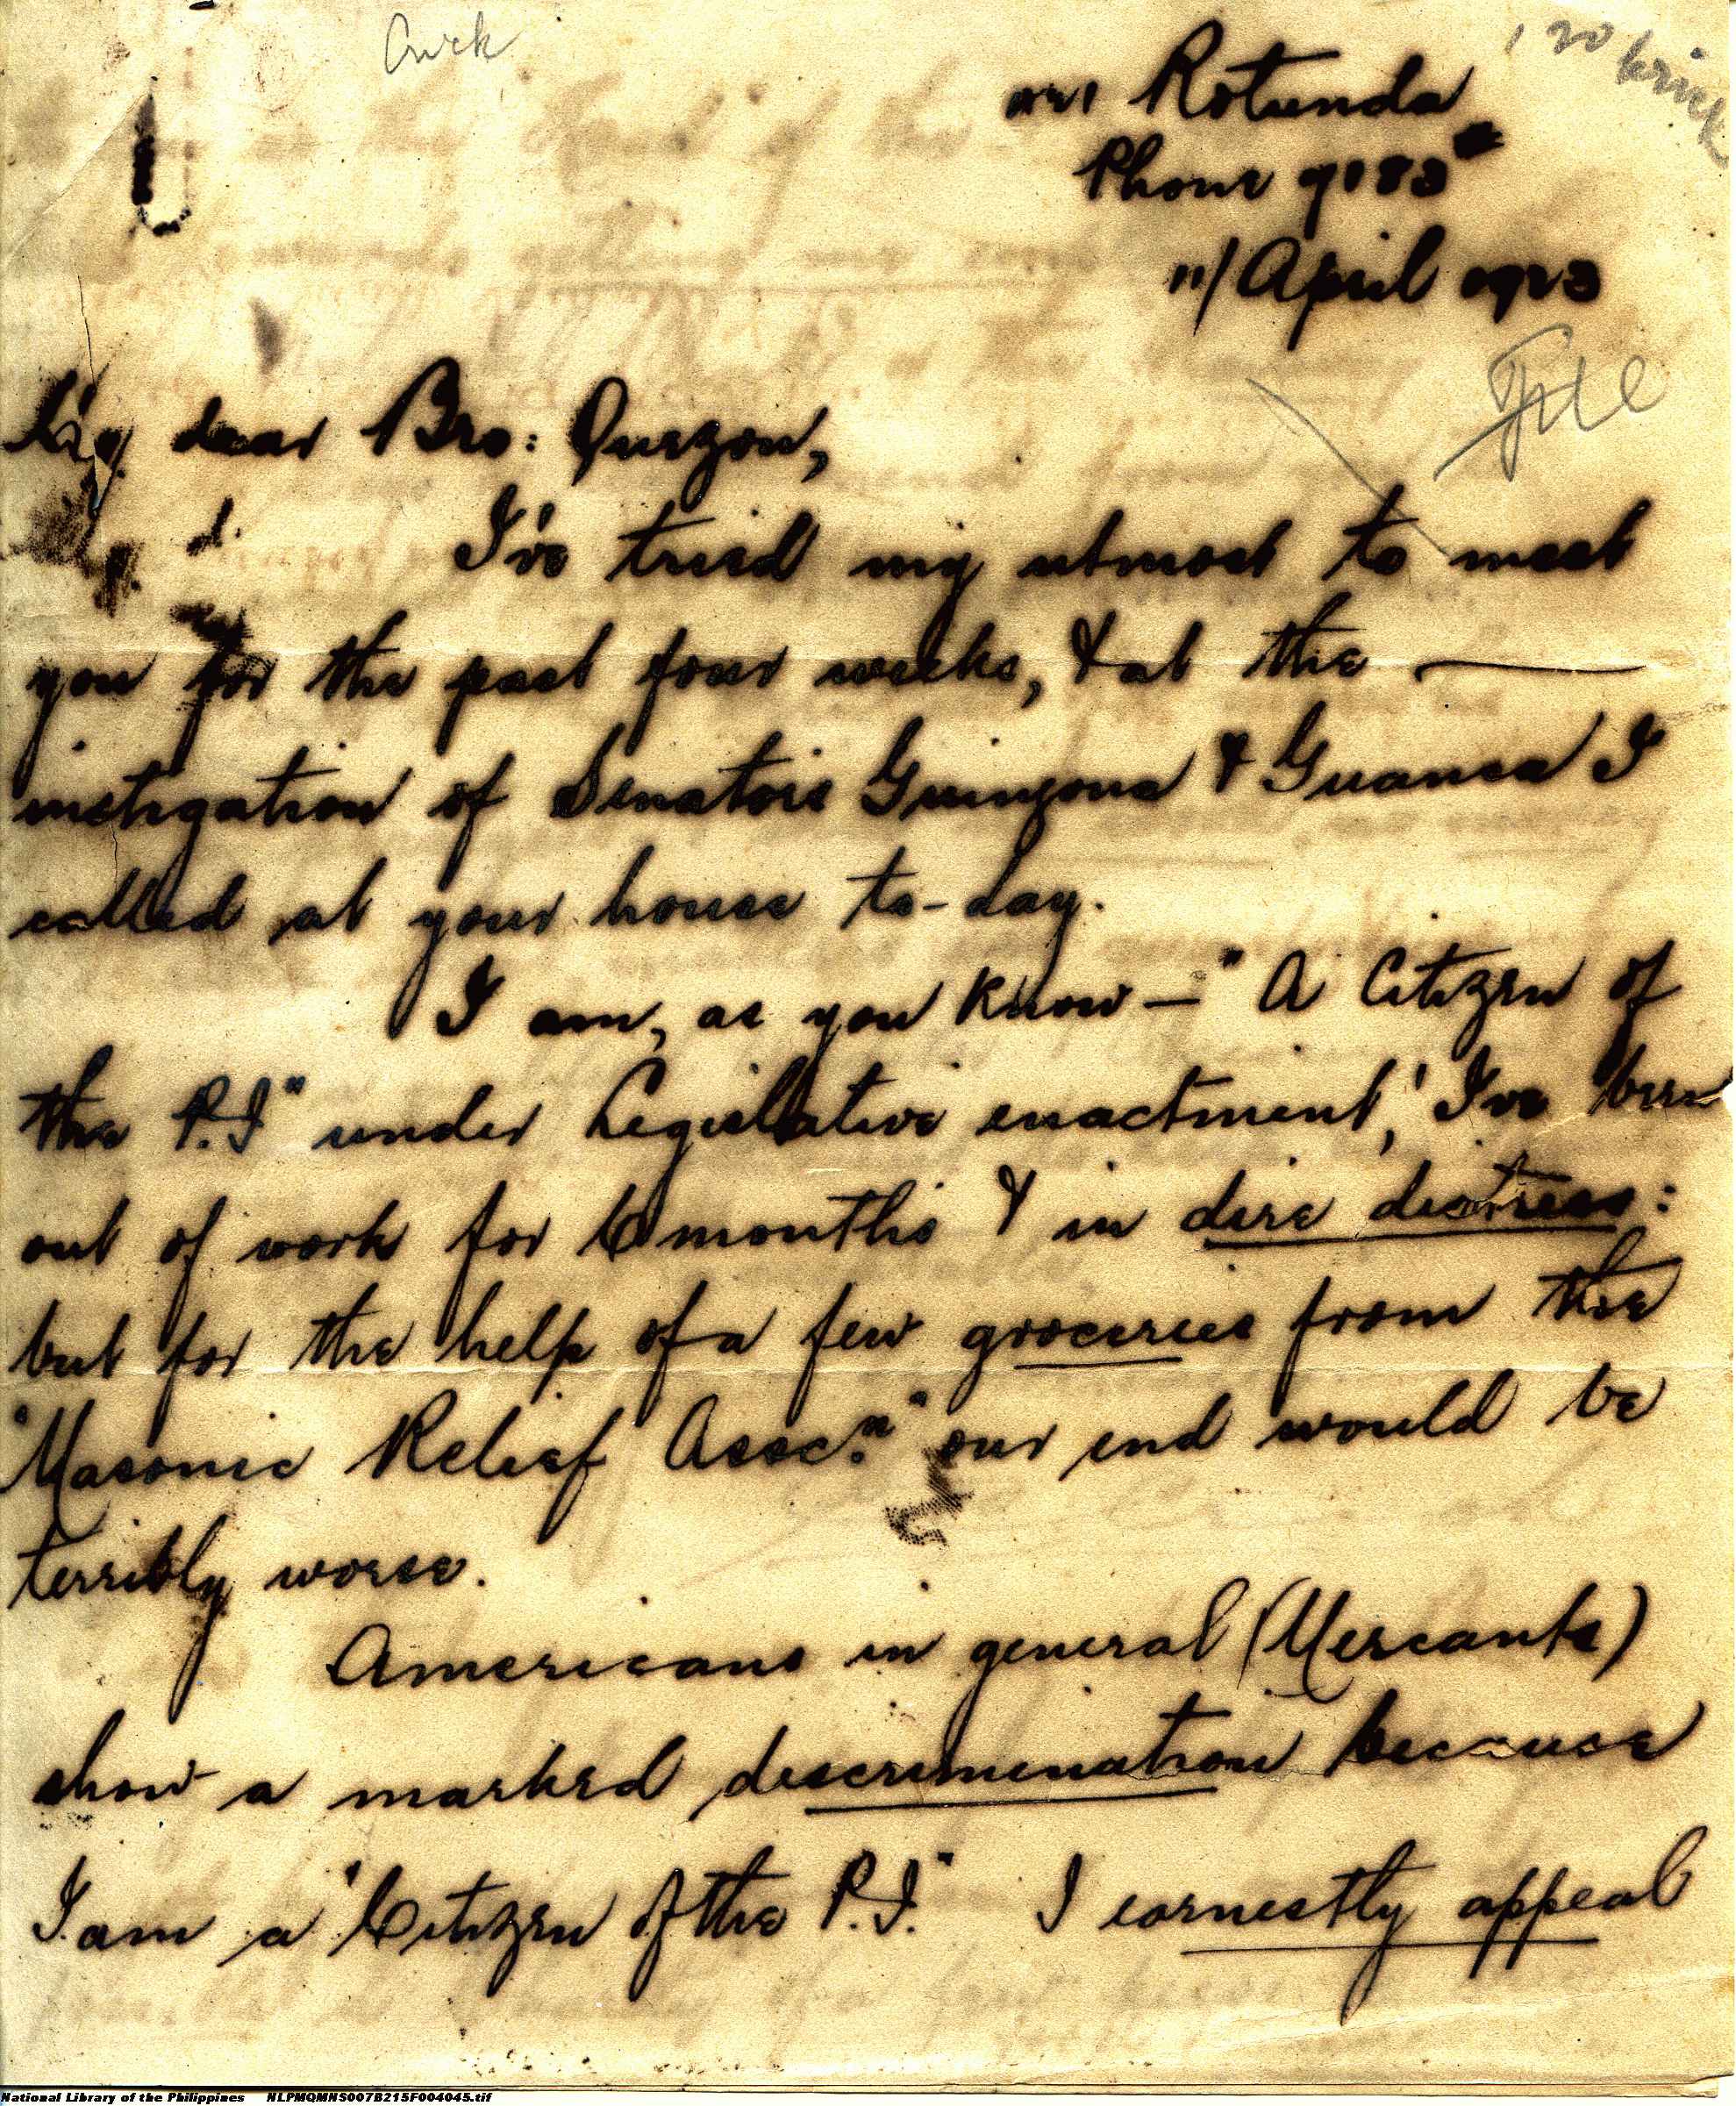 Rotunda
Phone 9183
11/ April 1923
File
My dear Bro: Quezon,
I've tried my utmost to meet
you for the past four weeks, & at the —
instigation of Senators Guingona & Guanco I
called at your house to-day.
I am, as you know — "A Citizen of
the P.I" under Legislative enactment, I've been
out of work for 6 months & in dire distress:
but for the help of a few groceries from the
"Masonic Relief Assc.n" our end would be
terribly worse.
Americans in general (Mercants)
show a marked descrimination because
I am a "Citizen of the P.I." I earnestly appeal
National Library of the Philippines NLPMQMNS007B215F004045.tif